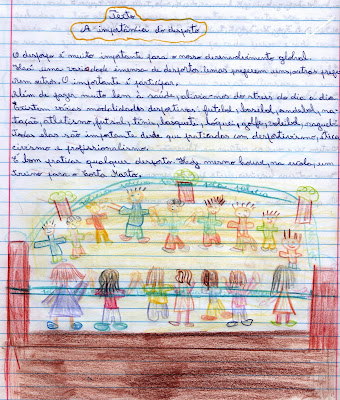 Texto
A importância do desporto
O desporto é muito importante para o nosso desenvolvimento global.
Há uma variedade imensa de desporto. Umas preferem uns, outros preferem outros. O importante é participar.
Além de fazer muito bem à saúde, alivia-nos do stress do dia a dia.
Existem várias modalidades desportivas: futebol, basebol, andebol, natação, atletismo, futsal, ténis, basquete, hóquei, golfe, voleibol, rugby.
Todas elas são importantes desde que praticadas com desportivismo,
civismo e profissionalismo.
É bom praticar qualquer desporto. Hoje mesmo houve, na escola, um
treino para o Corta Mato.